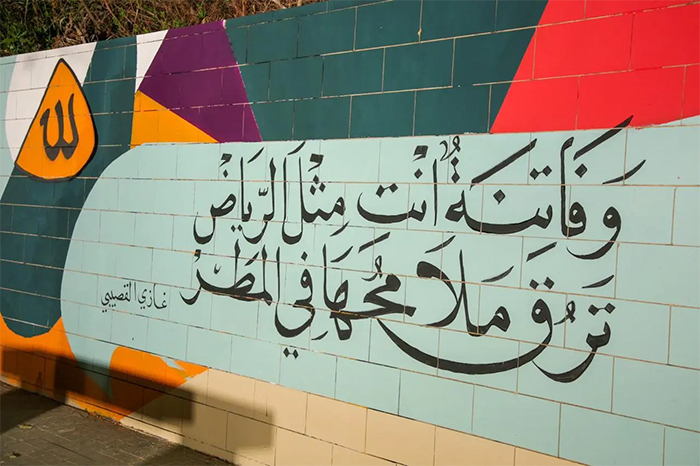 وَفَاتِنَةٌ أَنْتِ مِثْلَ الرِّيَاضْ
تَرِقُّ مَلَامِحُهَا فِي الْمَطَرْ
غازي القصيبي
لله